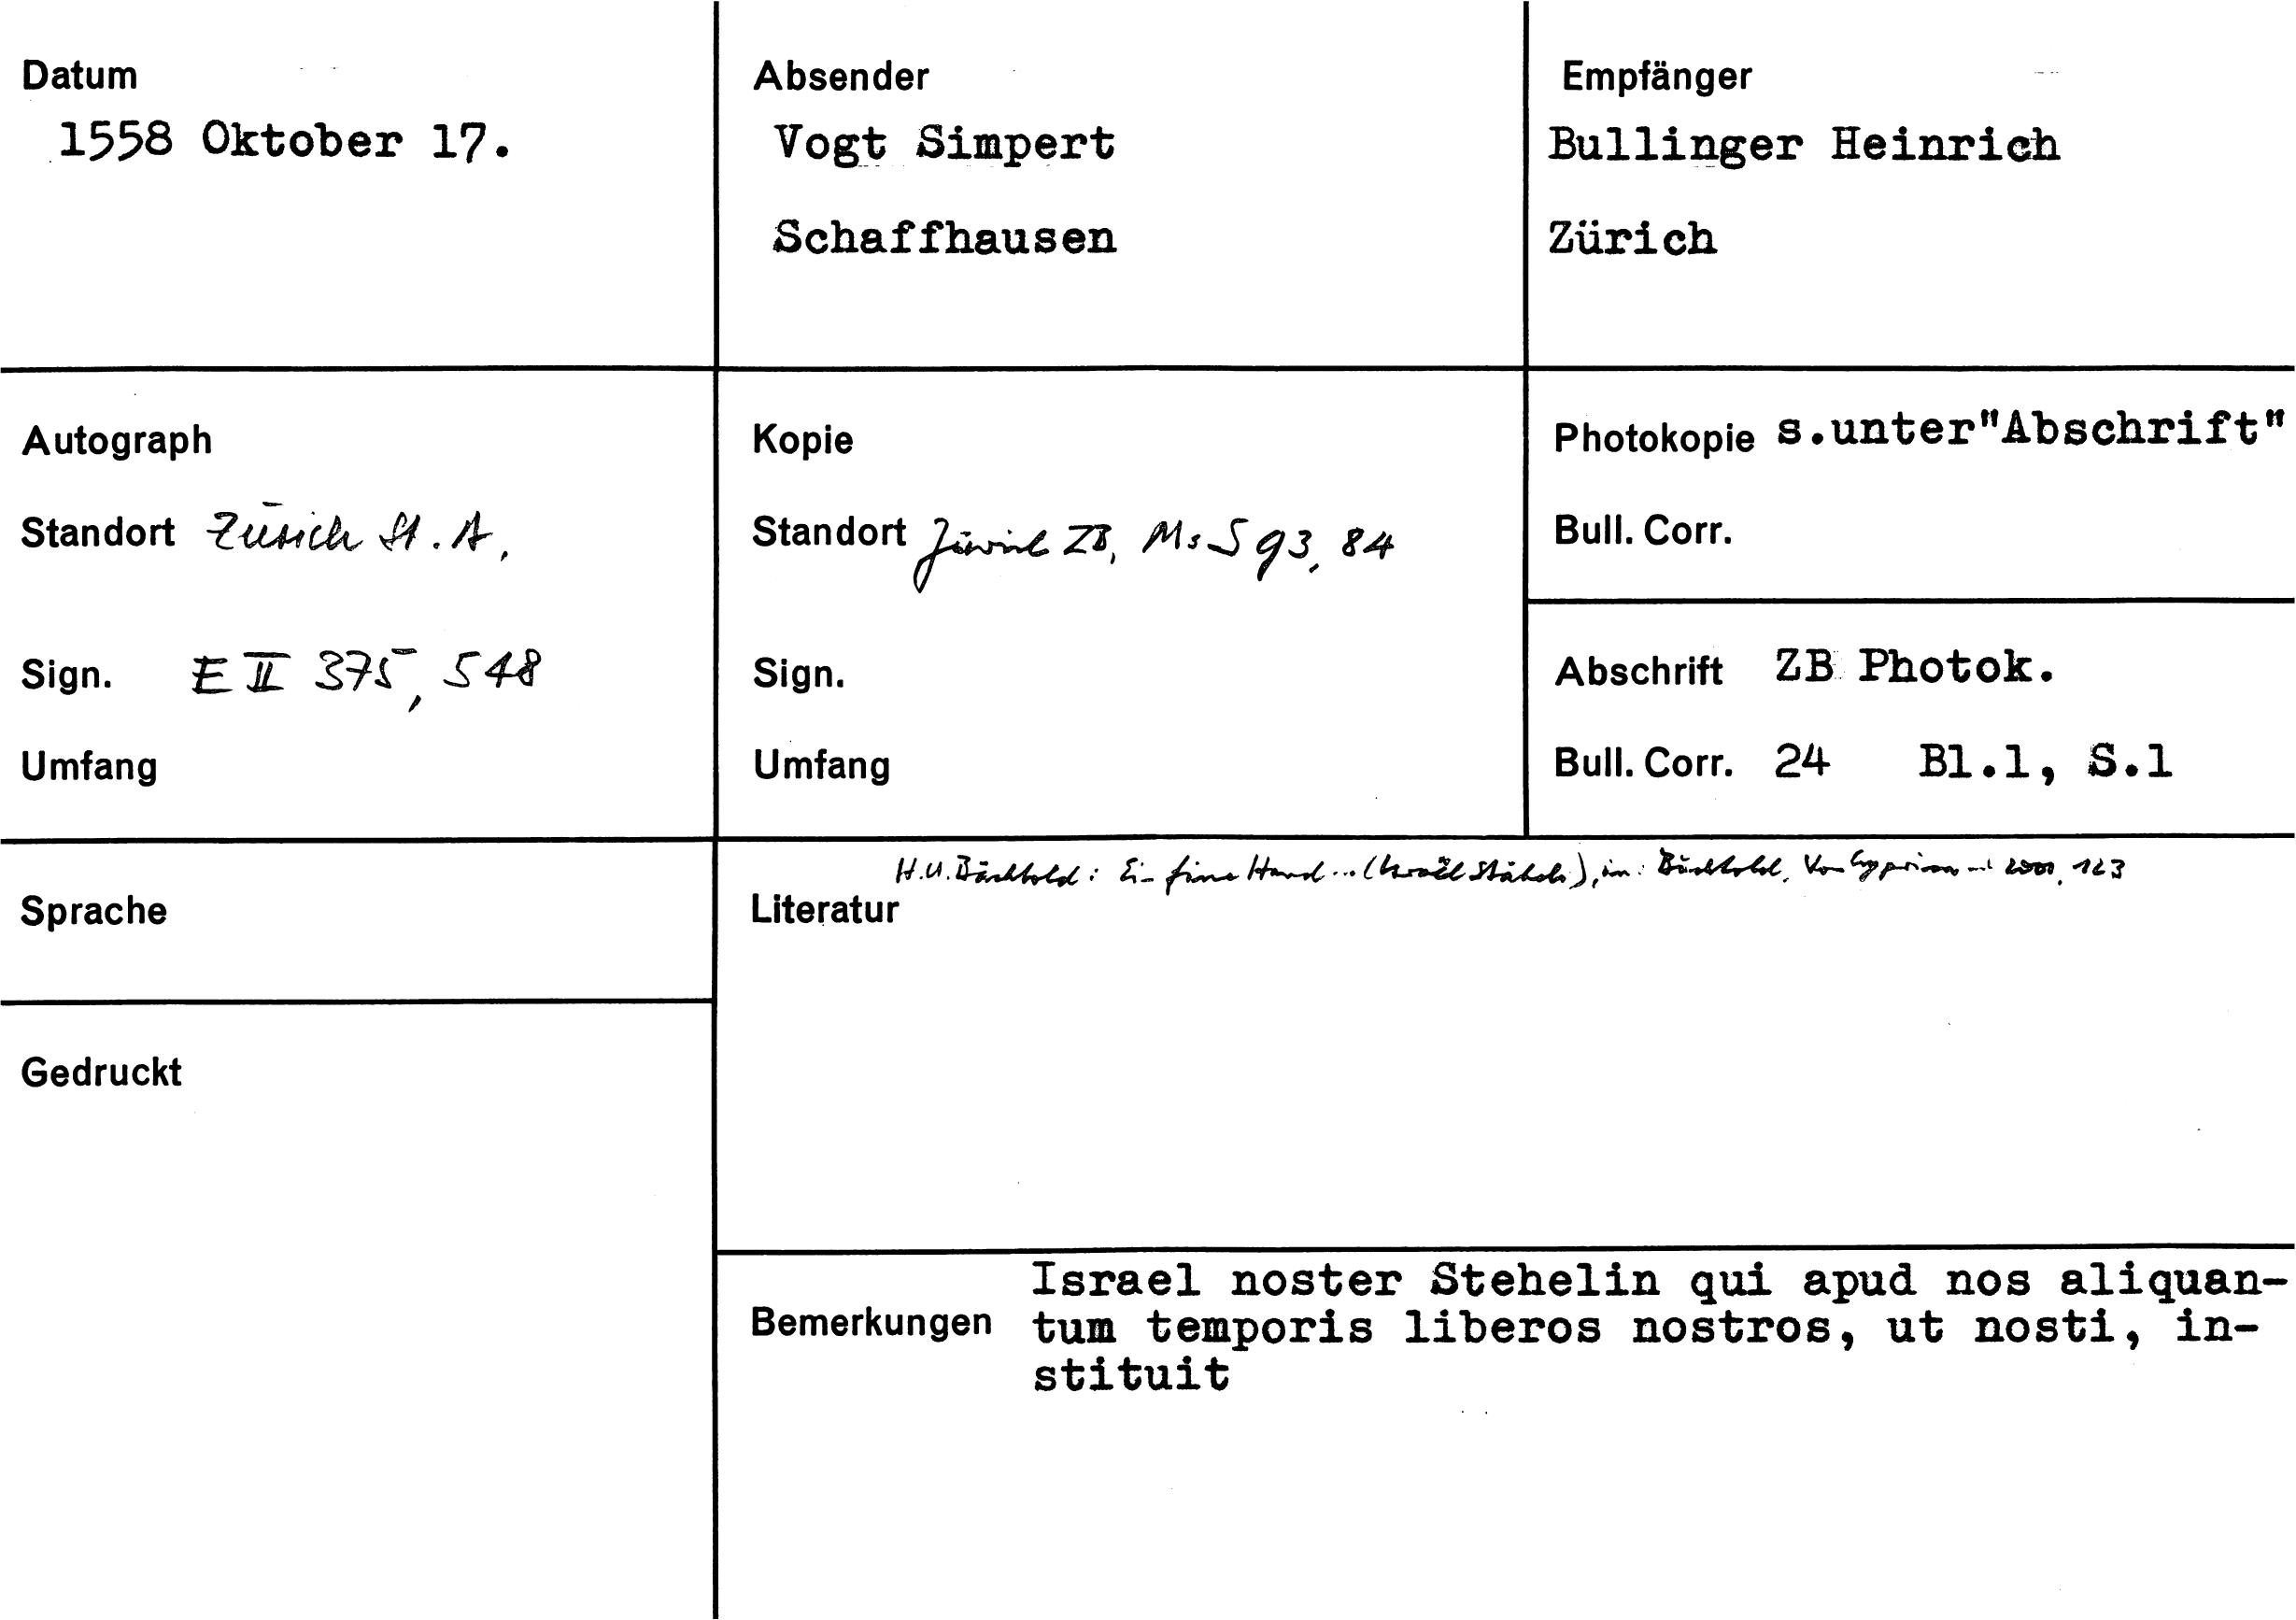 Datum
1558 Oktober 17.
Absender
Vogt Simpert
Schaffhausen
Empfänger
Bullinger Heinrich
Zürich
Autograph
Standort Zürich St. A.
Sign. E II 375, 548
Umfang
Kopie
Standort Zürich ZB, Ms S 93, 84
Sign.
Umfang
Photokopie s.unter"Abschrift"
Bull. Corr.
Abschrift ZB Photok.
Bull. Corr. 24 Bl.1, S.1
Sprache
Gedruckt
H.U. Bächtold: Hand... in: Bächtold, 123
Literatur
Bemerkungen
Israel noster Stehelin qui apud nos aliquan-
tum temporis liberos nostros, ut nosti, in-
stituit